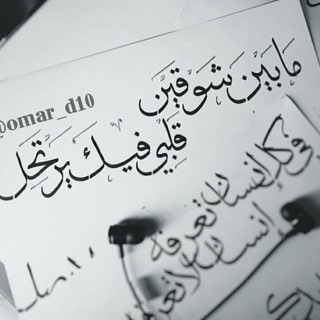 @omar_d10
مَا بَيْنَ شَوْقَيْنِ
قَلْبِي فِيكَ يَرْتَحِل
في كل إنسان تعرفه
إنسان لا تعرفه